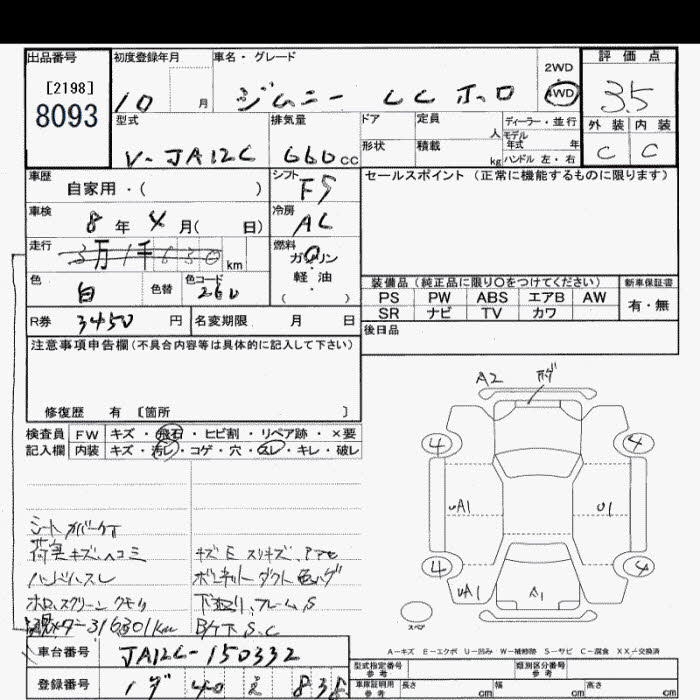 出品番号 初度登録年月 車名・グレード 2WD 4WD 評価点
[2198]
8093 10 月 ジムニー CC ホロ 3.5
型式 排気量 ドア 定員 人 ディーラー・並行 外装 内装
モデル年式 年
V-JA12C 660cc 形状 積載 kg ハンドル 左・右 C C
車歴 自家用・( ) シフト F5 セールスポイント (正常に機能するものに限ります)
車検 8年 4月( 日) 冷房 AC
走行 3万1千630 km 燃料 ガソリン
軽・油
( )
色 白 色替 色コード 26U 装備品 (純正品に限り○をつけてください) 新車保証書
PS PW ABS エアB AW 有・無
SR ナビ TV カワ
R券 3450 円 名変期限 月 日 後日品
注意事項申告欄(不具合内容等は具体的に記入して下さい)
修復歴 有 〔箇所 〕
検査員 FW キズ・飛石・ヒビ割・リペア跡・×要
記入欄 内装 キズ・汚レ・コゲ・穴・スレ・キレ・破レ
A2
4 4
uA1 U1
4 4
uA1 A1
スペア
シート カバー
荷実キズ、ヘコミ キズ E スリキズ、
ハンドルスレ ボンネット ダクト 色ハゲ
ホロ、スクリーン クモリ 下廻り、フレーム S
メーター316301km B
A-キズ E-エクボ U-凹み W-補修跡 S-サビ C-腐食 XX/交換済
車台番号 JA12C-150332
登録番号 40 838
型式指定番号 参考 類別区分番号 参考
車庫証明用 参考 長さ cm 幅 cm 高さ cm